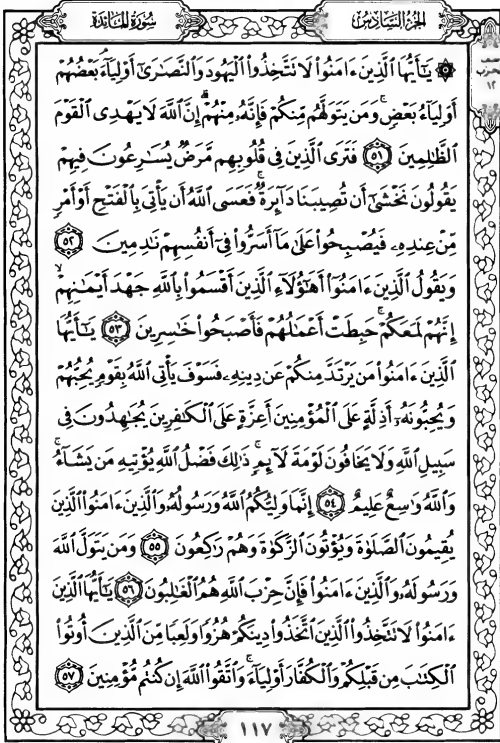 سُورَةُ المَائِدَةِ
الجُزْءُ السَّادِسُ
۞ يَٰٓأَيُّهَا ٱلَّذِينَ ءَامَنُوا۟ لَا تَتَّخِذُوا۟ ٱلْيَهُودَ وَٱلنَّصَٰرَىٰٓ أَوْلِيَآءَۘ بَعْضُهُمْ
أَوْلِيَآءُ بَعْضٍۚ وَمَن يَتَوَلَّهُم مِّنكُمْ فَإِنَّهُۥ مِنْهُمْۗ إِنَّ ٱللَّهَ لَا يَهْدِى ٱلْقَوْمَ
ٱلظَّٰلِمِينَ ٥١ فَتَرَى ٱلَّذِينَ فِى قُلُوبِهِم مَّرَضٌ يُسَٰرِعُونَ فِيهِمْ
يَقُولُونَ نَخْشَىٰٓ أَن تُصِيبَنَا دَآئِرَةٌۚ فَعَسَى ٱللَّهُ أَن يَأْتِىَ بِٱلْفَتْحِ أَوْ أَمْرٍ
مِّنْ عِندِهِۦ فَيُصْبِحُوا۟ عَلَىٰ مَآ أَسَرُّوا۟ فِىٓ أَنفُسِهِمْ نَٰدِمِينَ ٥٢
وَيَقُولُ ٱلَّذِينَ ءَامَنُوٓا۟ أَهَٰٓؤُلَآءِ ٱلَّذِينَ أَقْسَمُوا۟ بِٱللَّهِ جَهْدَ أَيْمَٰنِهِمْۙ
إِنَّهُمْ لَمَعَكُمْۚ حَبِطَتْ أَعْمَٰلُهُمْ فَأَصْبَحُوا۟ خَٰسِرِينَ ٥٣ يَٰٓأَيُّهَا
ٱلَّذِينَ ءَامَنُوا۟ مَن يَرْتَدَّ مِنكُمْ عَن دِينِهِۦ فَسَوْفَ يَأْتِى ٱللَّهُ بِقَوْمٍ يُحِبُّهُمْ
وَيُحِبُّونَهُۥٓ أَذِلَّةٍ عَلَى ٱلْمُؤْمِنِينَ أَعِزَّةٍ عَلَى ٱلْكَٰفِرِينَ يُجَٰهِدُونَ فِى
سَبِيلِ ٱللَّهِ وَلَا يَخَافُونَ لَوْمَةَ لَآئِمٍۚ ذَٰلِكَ فَضْلُ ٱللَّهِ يُؤْتِيهِ مَن يَشَآءُۚ
وَٱللَّهُ وَٰسِعٌ عَلِيمٌ ٥٤ إِنَّمَا وَلِيُّكُمُ ٱللَّهُ وَرَسُولُهُۥ وَٱلَّذِينَ ءَامَنُوا۟ ٱلَّذِينَ
يُقِيمُونَ ٱلصَّلَوٰةَ وَيُؤْتُونَ ٱلزَّكَوٰةَ وَهُمْ رَٰكِعُونَ ٥٥ وَمَن يَتَوَلَّ ٱللَّهَ
وَرَسُولَهُۥ وَٱلَّذِينَ ءَامَنُوا۟ فَإِنَّ حِزْبَ ٱللَّهِ هُمُ ٱلْغَٰلِبُونَ ٥٦ يَٰٓأَيُّهَا ٱلَّذِينَ
ءَامَنُوا۟ لَا تَتَّخِذُوا۟ ٱلَّذِينَ ٱتَّخَذُوا۟ دِينَكُمْ هُزُوًا وَلَعِبًا مِّنَ ٱلَّذِينَ أُوتُوا۟
ٱلْكِتَٰبَ مِن قَبْلِكُمْ وَٱلْكُفَّارَ أَوْلِيَآءَۚ وَٱتَّقُوا۟ ٱللَّهَ إِن كُنتُم مُّؤْمِنِينَ ٥٧
١١٧